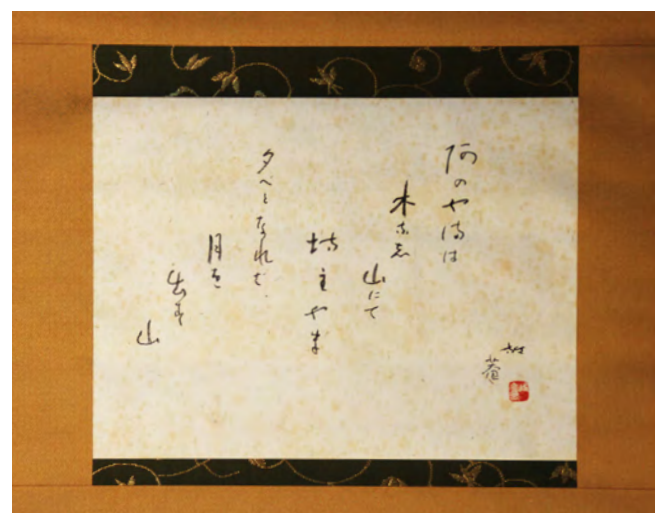 阿のや満は
木奈志
山にて
坊主やま
夕べとなれば
月を
出す
山
放菴